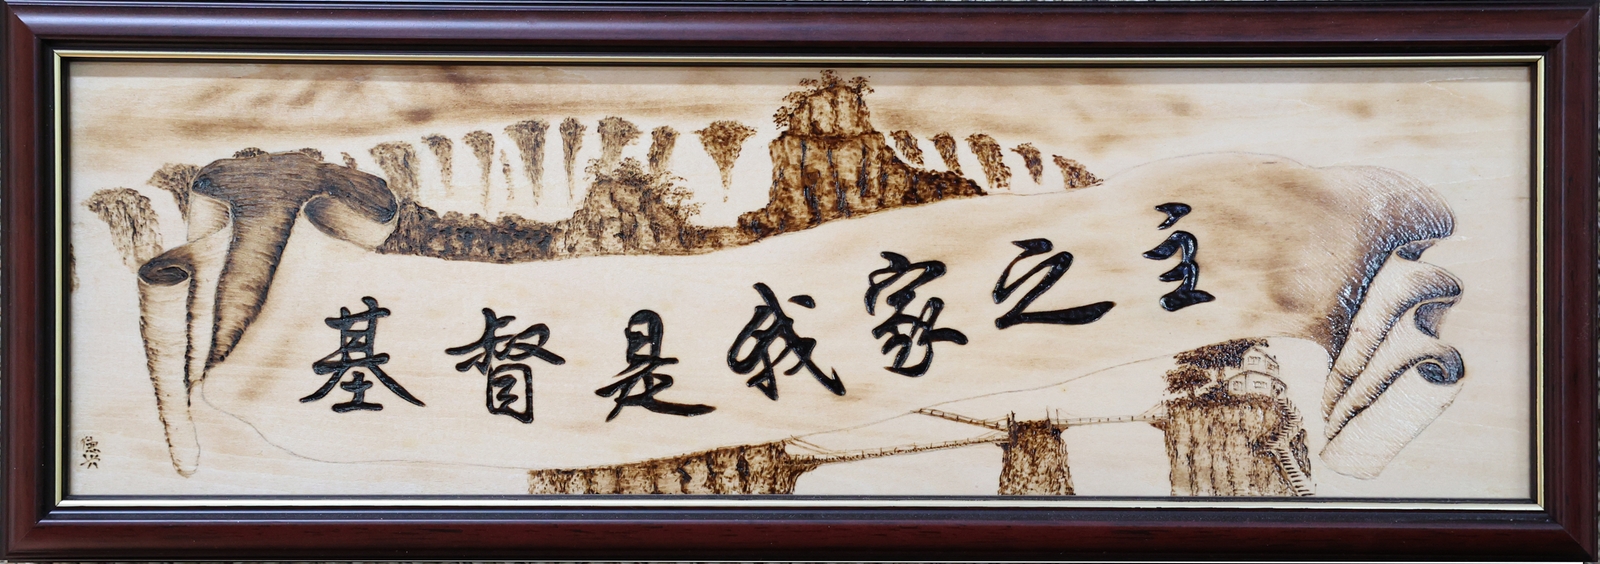 基督是我家之主